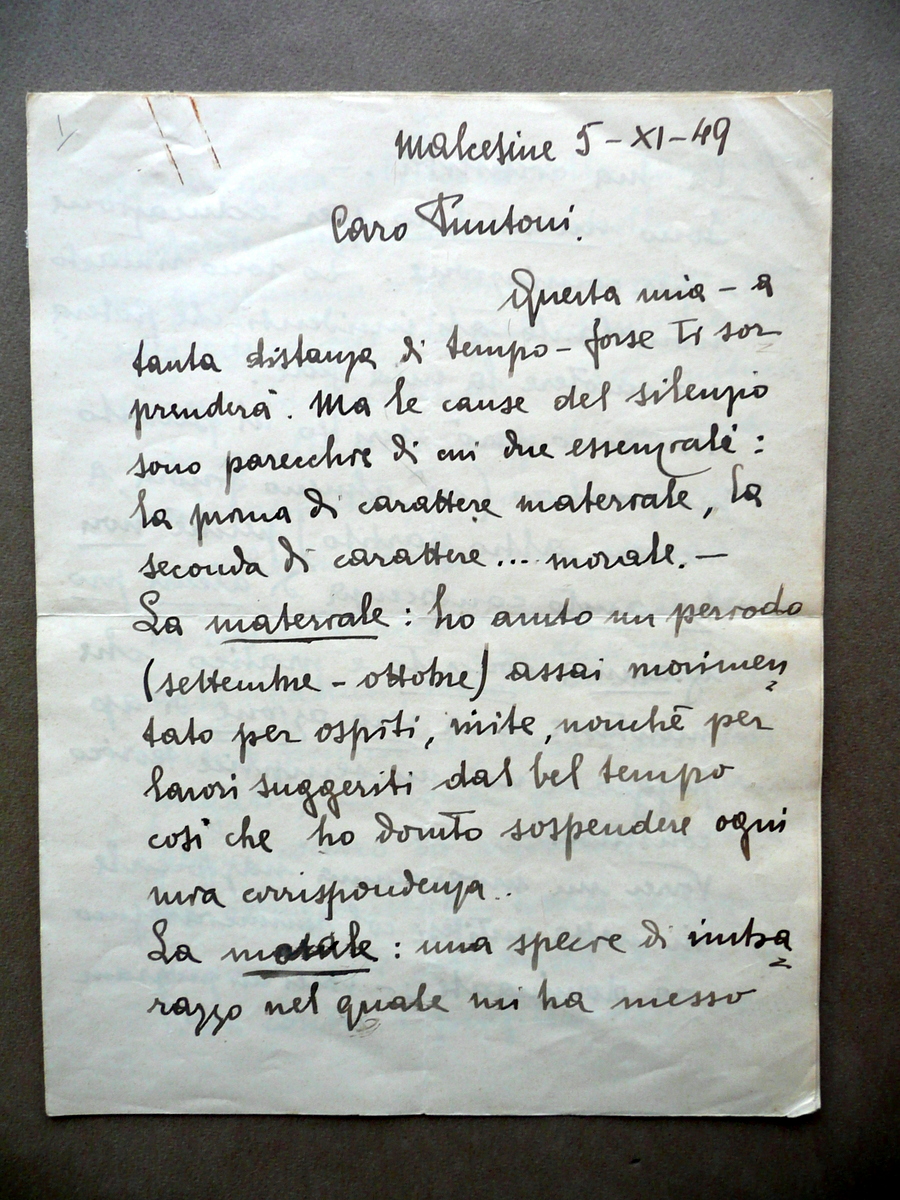 Malcesine 5-XI-49
Caro Puntoni.
Questa mia - a
tanta distanza di tempo - forse ti sor
prenderà. Ma le cause del silenzio
sono parecchie di cui due essenziali:
la prima di carattere materiale, la
seconda di carattere... morale. -
La materiale: ho avuto un periodo
(settembre - ottobre) assai movimen
tato per ospiti, visite, nonché per
lavori suggeriti dal bel tempo
così che ho dovuto sospendere ogni
mia corrispondenza..
La morale: una specie di imba
razzo nel quale mi ha messo